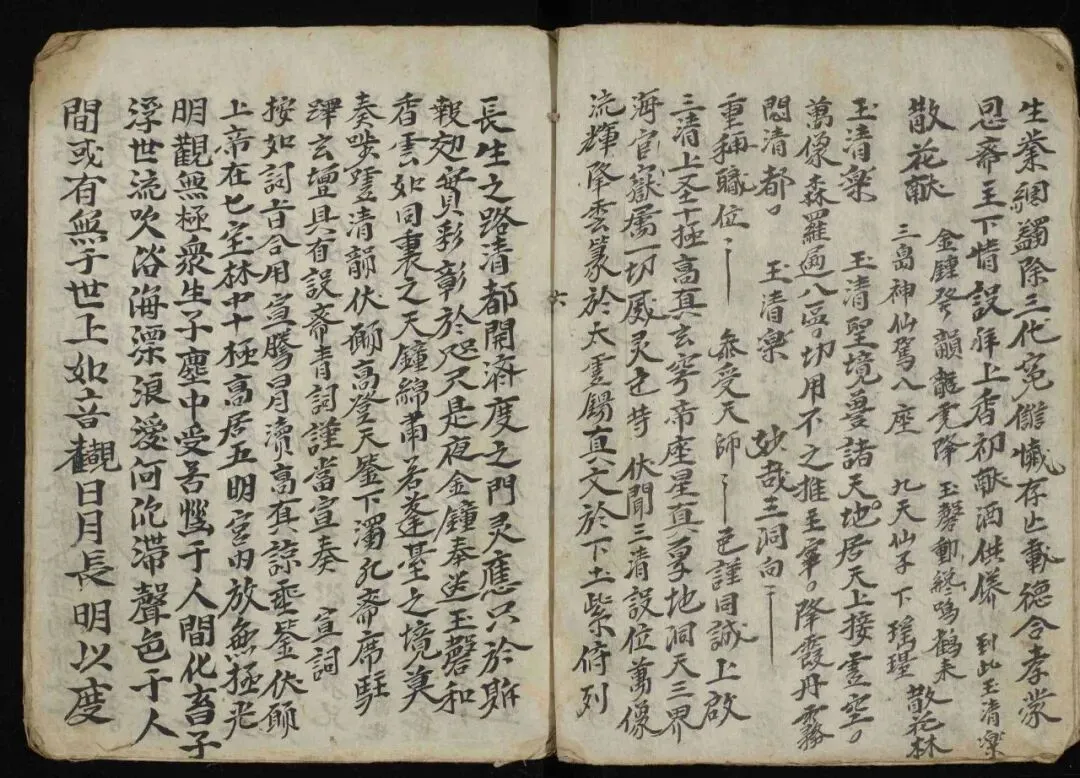 生業網蠲除三代冤讎懺存亡載德合孝蒙
恩齋主下情設拜上香初献酒供養 到此玉清樂
金鐘發韻龍鸞降 玉磬動終鳴鶴來
散花献 三島神仙駕八座 九天仙子下瑤堦 散花林
玉清樂 玉清聖境曼諸天地居天上接雲空
萬像森羅遍八區切用不之推主宰降霞丹霧
悶清都 玉清樂 妙哉三洞向
重稱職位 參受天師 臣謹同誠上啟
三清上圣十極高真玄穹帝座星真享地洞天三界
海官嶽屬一切威灵 伏聞三清設位萬像
流輝降雲篆於太虛錫真文於下土紫府列
六
長生之路清都開濟度之門灵應只於斯
報冠彩彰於咫尺是夜金鐘奉送玉磬和
香雲如同裏之天鐘綿肅若蓬臺之境莫
奏啖登清韻伏願高登天鑒下濁兆斋席駐
蹕玄壇具有設斋青詞謹當宣奏 宣詞
按如詞旨合用宣騰冐瀆高真諒垂鉴伏願
上帝在七宝林中十極高居五明宮内放無極光
明觀無極衆生子塵中受苦惱于人間化畜子
浮世流吹浴海漂浪愛何沉滞聲色于人
間或有無于世上如言觀日月長明以度